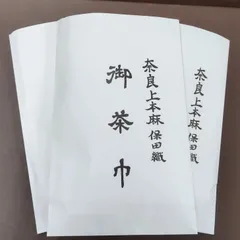 奈良上本麻 保田織
御茶巾
奈良上本麻 保田織